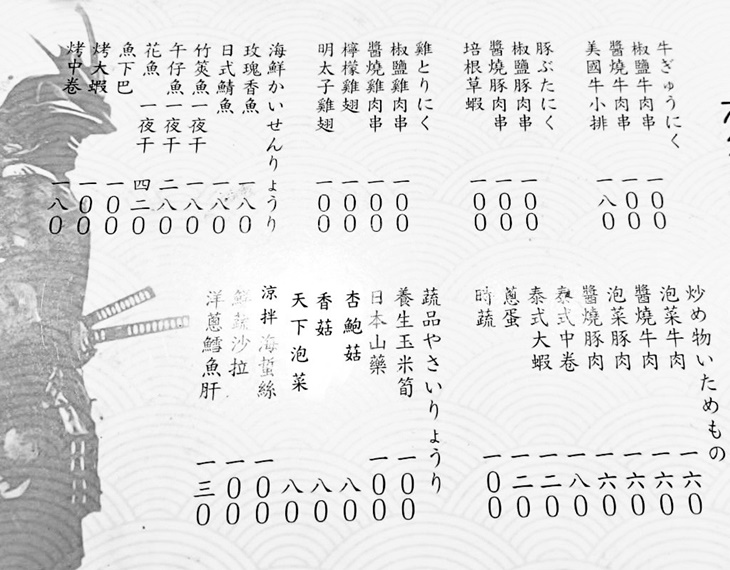 牛ぎゅうにく
椒鹽牛肉串 一00
醬燒牛肉串 一00
美國牛小排 一八0
豚ぶたにく
椒鹽豚肉串 一00
醬燒豚肉串 一00
培根草蝦 一00
雞とりにく
椒鹽雞肉串 一00
醬燒雞肉串 一00
檸檬雞翅 一00
明太子雞翅 一00
海鮮かいせんりょうり
玫瑰香魚 一八0
日式鯖魚 一八0
竹筴魚一夜干 一八0
午仔魚一夜干 二八0
花魚一夜干 四二0
魚下巴 一00
烤大蝦 一00
烤中卷 一八0
炒め物いためもの
泡菜牛肉 一六0
醬燒牛肉 一六0
泡菜豚肉 一六0
醬燒豚肉 一六0
泰式中卷 一八0
泰式大蝦 一二0
蔥蛋 一二0
時蔬 一00
蔬品やさいりょうり
養生玉米筍 一00
日本山藥 一00
杏鮑菇 八0
香菇 八0
天下泡菜 八0
涼拌海蜇絲 一00
鮮蔬沙拉 一00
洋蔥鱈魚肝 一三0